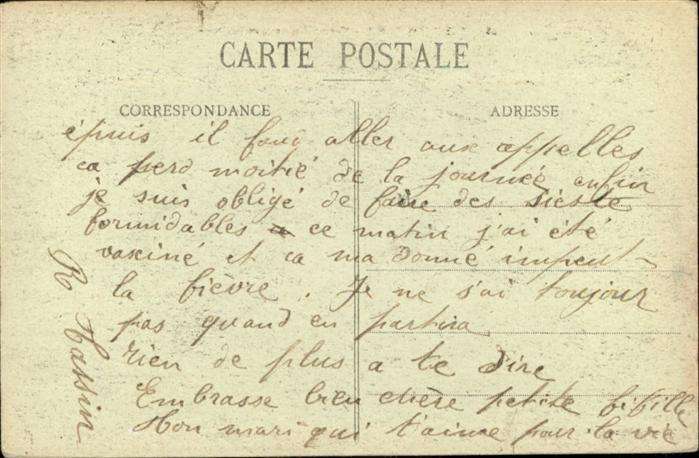 CARTE POSTALE
CORRESPONDANCE
ADRESSE
épuis il fauq aller aux appelles
ca perd moitié de la journée enfin
je suis obligé de faire des sieste
formidables ce matin j'ai été
vaxiné et ca ma donné impeut
la fièvre. Je ne s'ai toujour
pas quand en partira
rien de plus a te dire
Embrasse bien chère petite fifille
Ton mari qui t'aime pour la vie
R Hassin